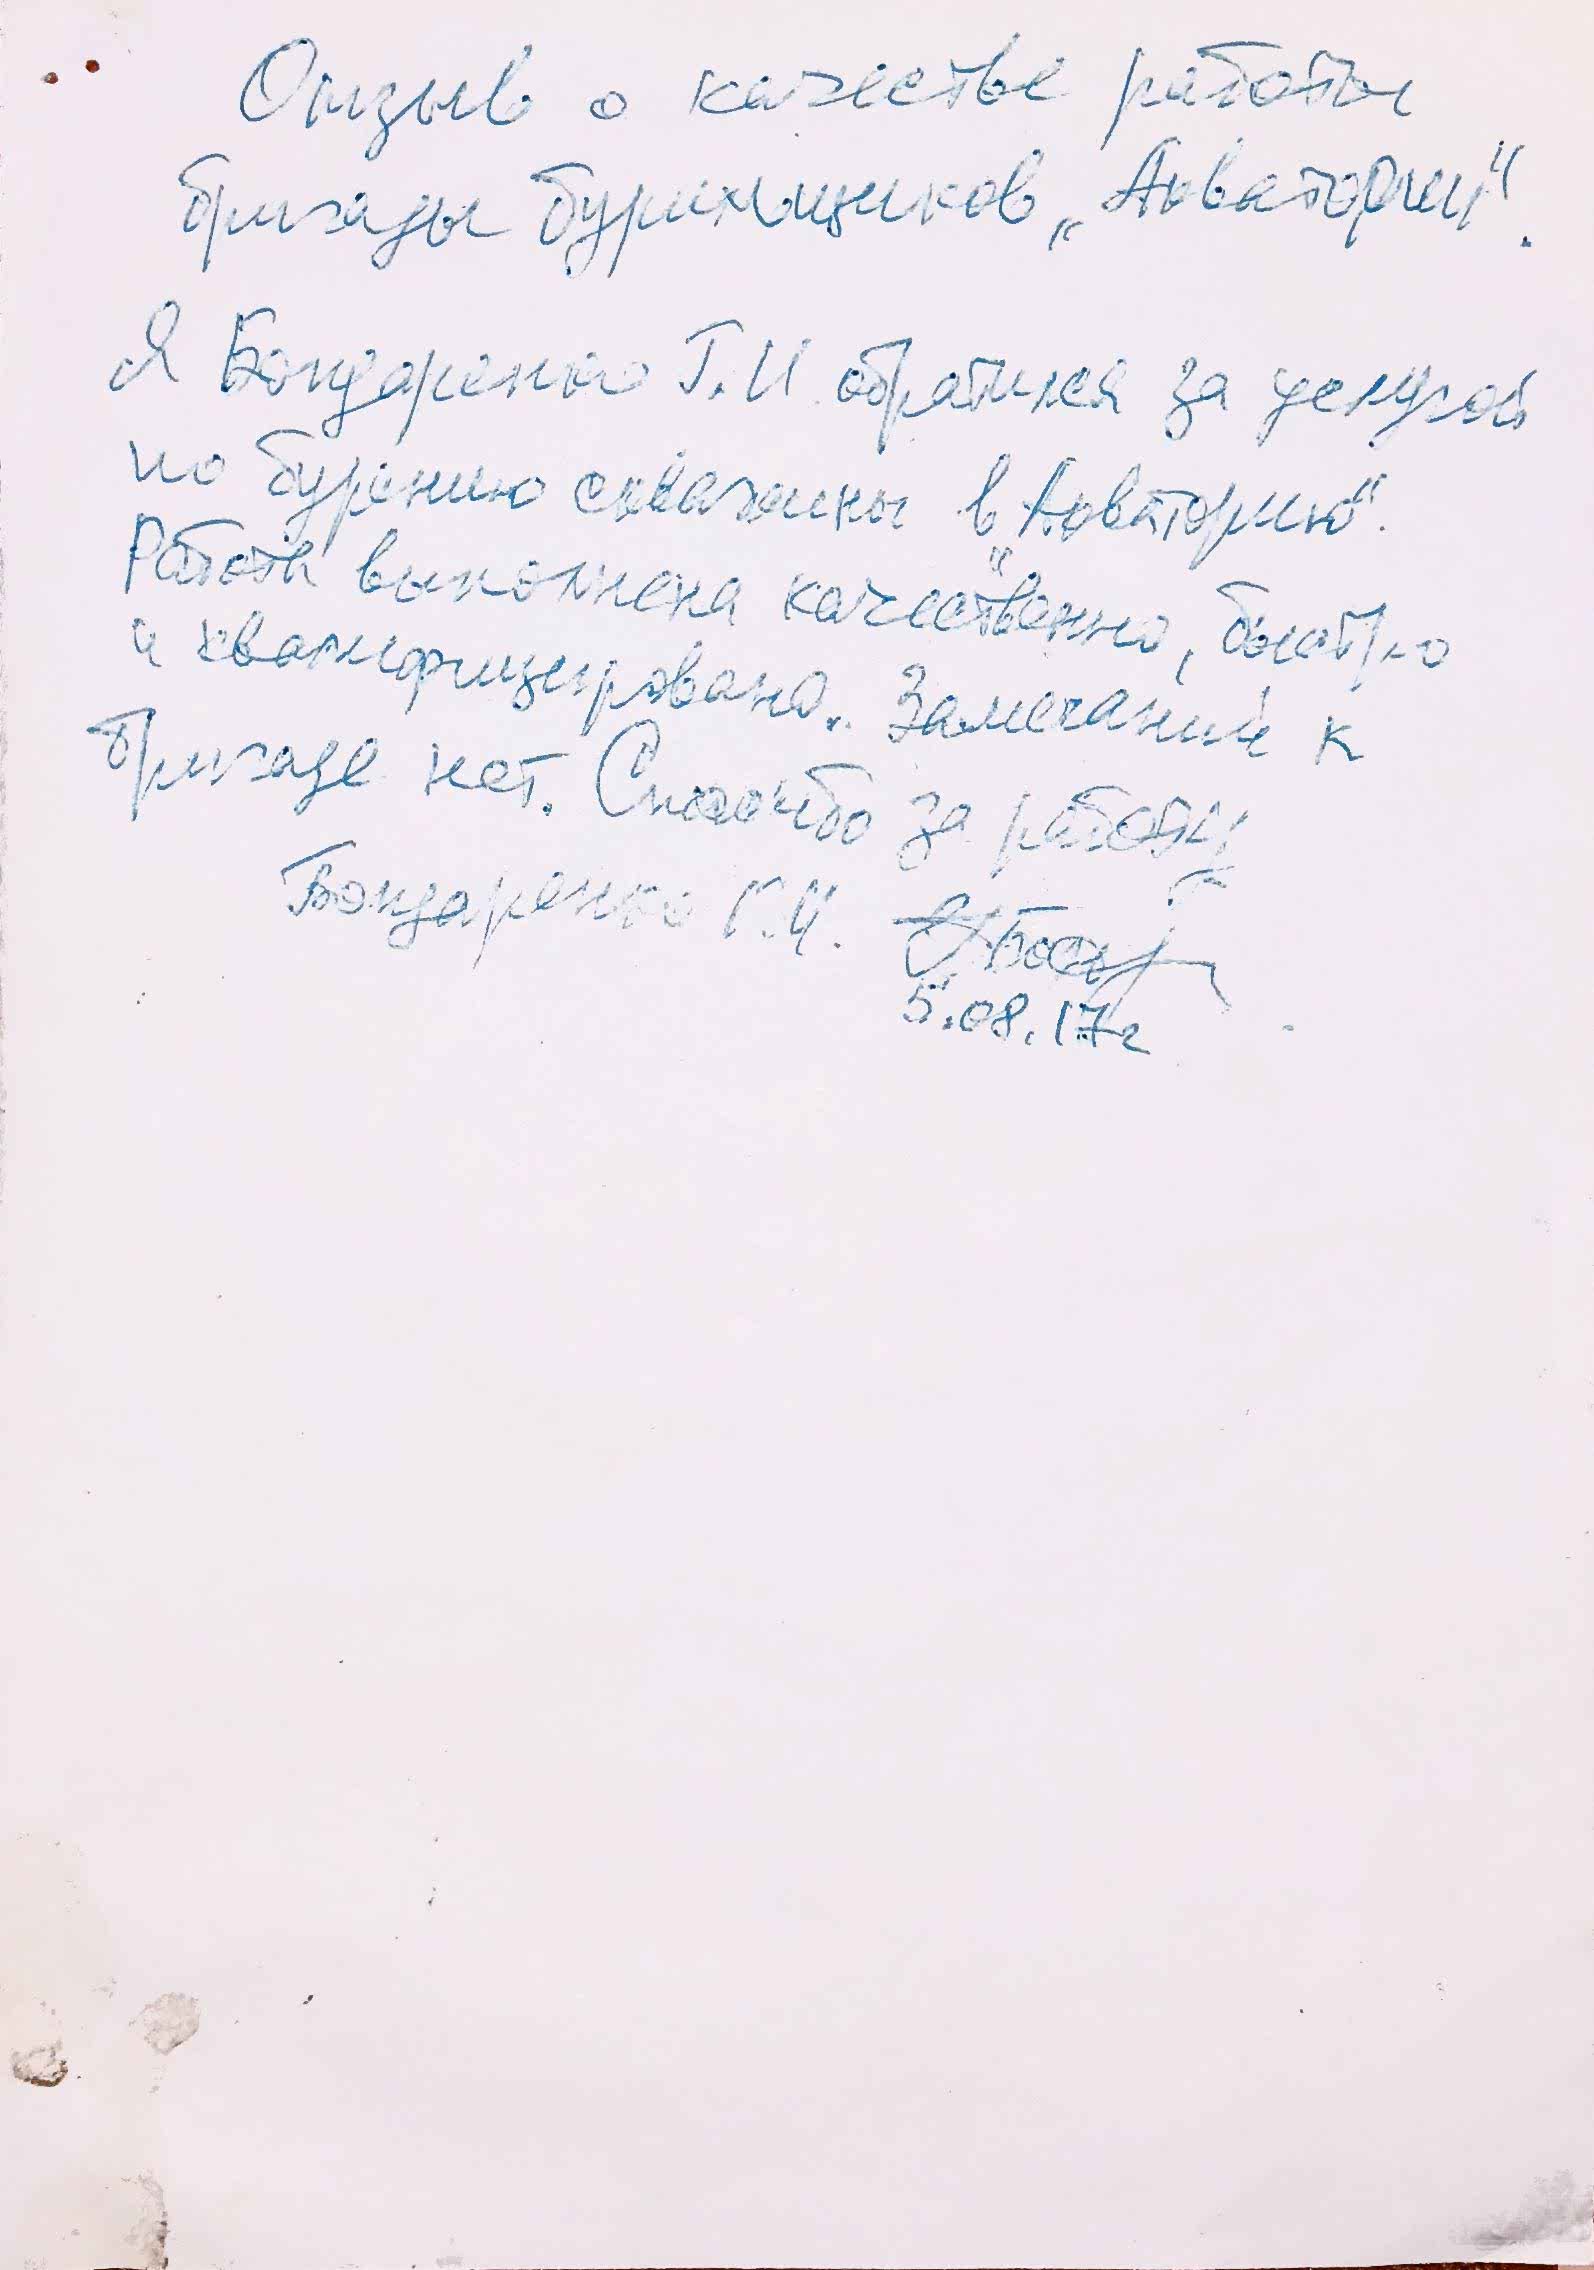 Отзыв о качестве работы
бригады бурильщиков „Акватории“.
Я Бондаренко Г.И. обратился за услугой
по бурению скважины в „Акваторию“.
Работа выполнена качественно, быстро
и квалифицировано. Замечаний к
бригаде нет. Спасибо за работу
Бондаренко Г.И.
5.08.17г